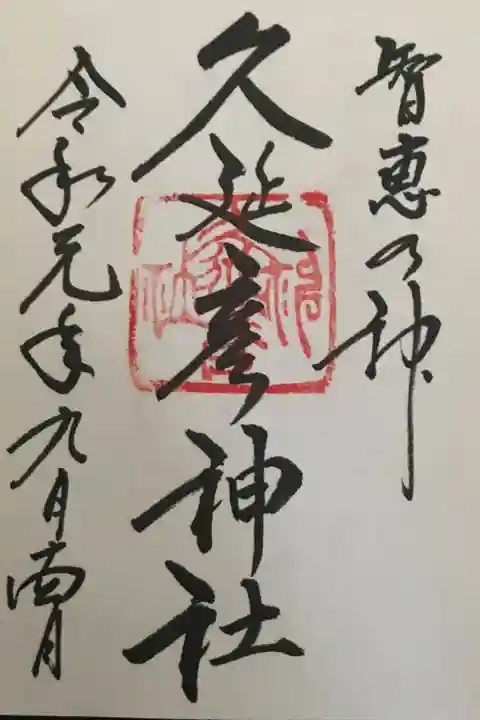 智恵の神
久延彦神社
令和元年九月